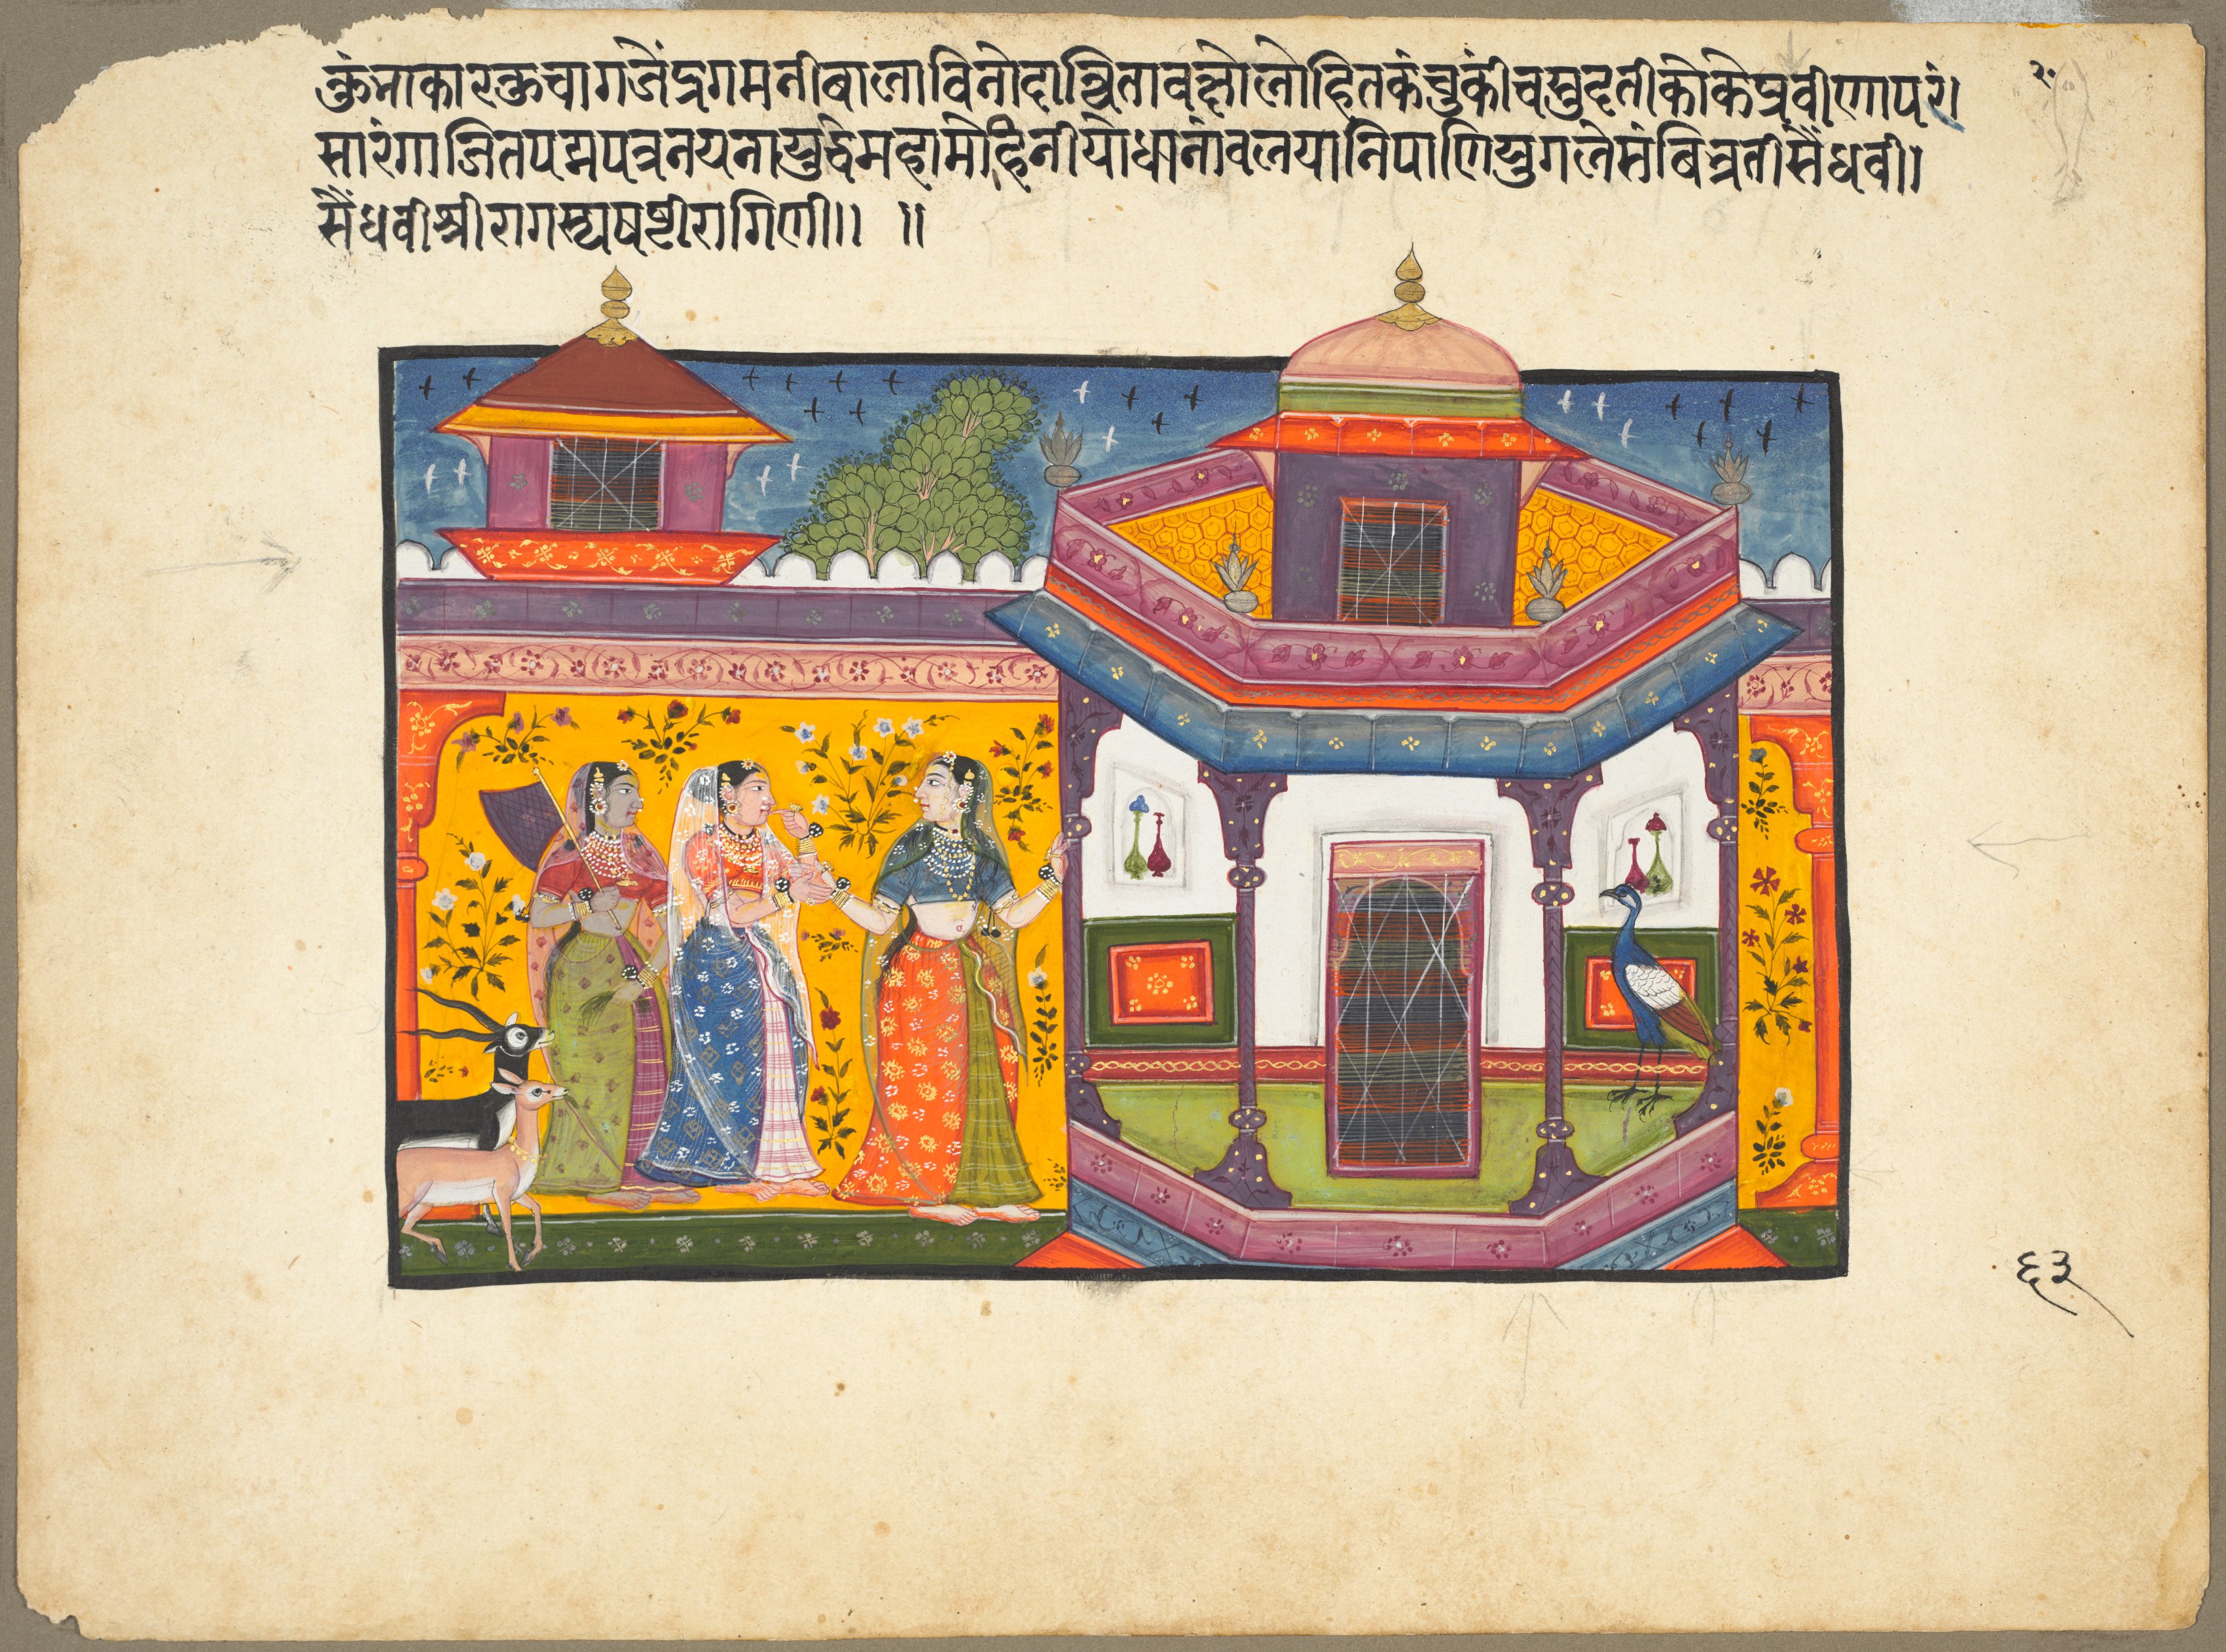 कुंभाकारकुचा गजेंद्रगमनी बाला विनोदान्विता वक्षो लोहितकंचुकी च सुदती कोके प्रवीणा परं।
सारंगाजितपद्मपत्रनयना युद्धे महामोहिनी योधानां वलयानि पाणियुगले संबिभ्रती सैंधवी।
सैंधवी श्रीरागस्य षष्टी रागिणी।। ॥
६३